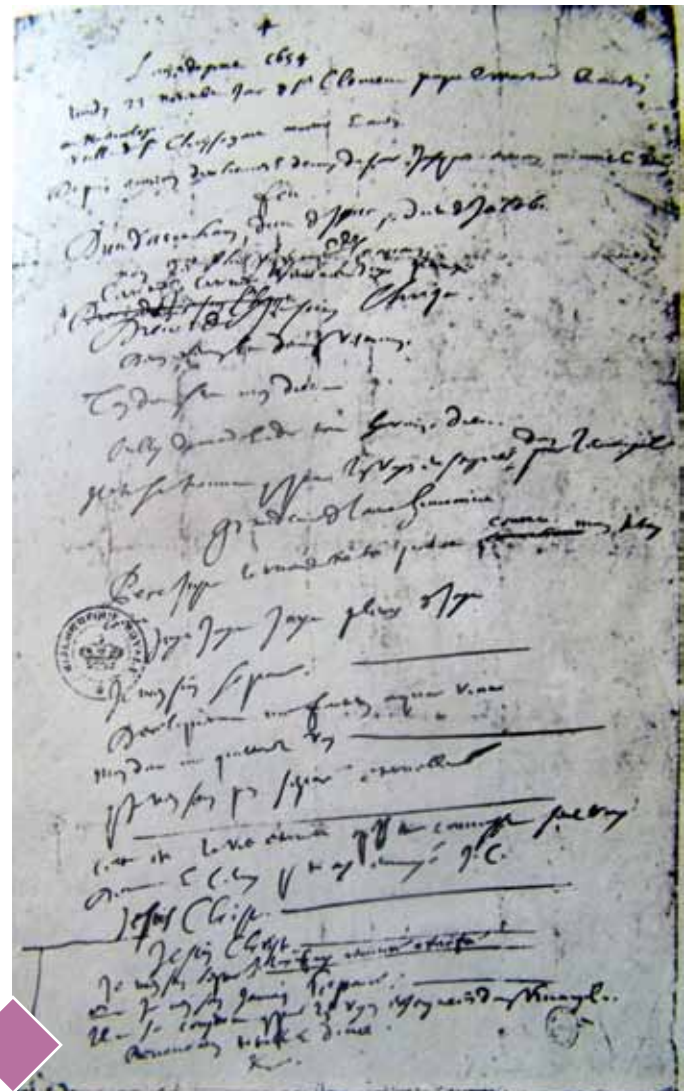 L'an de grace 1654
Lundy 23 novembre jour de St Clement pape et martyr et autres
au martyrologe
veille de St Chrysogone martyr et autres
Depuis environ dix heures et demy du soir jusques environ minuit et
Feu
Dieu d'Abraham, Dieu d'Isaac, Dieu de Jacob
non des philosophes et
Dieu de Jesus Christ
Deum meum et Deum vestrum
Ton Dieu sera mon Dieu
Oubly du monde et de tout hormis Dieu
Il ne se trouve que par les voyes enseignées dans l'Evangile
Grandeur de l'ame humaine
Pere juste le monde ne t'a point connu mais je t'ay
Joye Joye Joye pleurs de joye
Je m'en suis separé
Dereliquerunt me fontem aquae vivae
mon Dieu me quitterez vous
que je n'en sois pas separé eternellement
Cette est la vie eternelle qu'ils te connoissent seul vray
Dieu et celuy que tu as envoyé J.C.
Jesus Christ
Jesus Christ
Je m'en suis separé
que je n'en sois jamais separé
il ne se conserve que par les voyes enseignées dans l'Evangile
Renonciation totale et douce